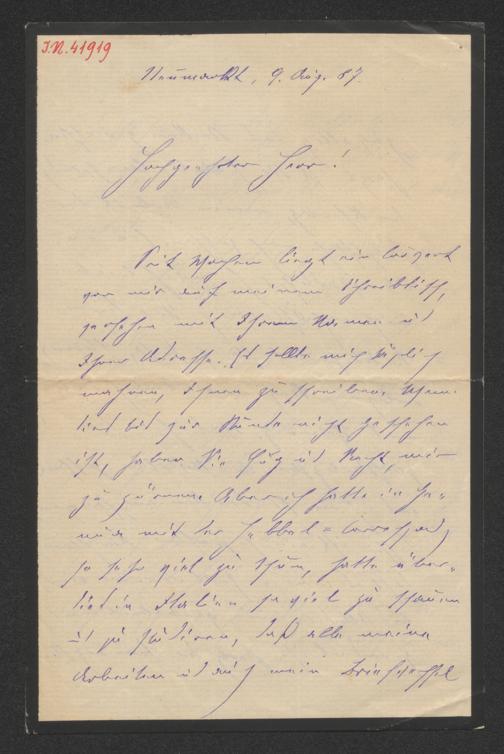 I.N. 41919
Neumarkt, 9. Aug. 87.
Hochgeehrter Herr!
Seit Wochen liegt ein Couvert
vor mir auf meinem Schreibtisch,
versehen mit Ihrem Namen u
Ihrer Adresse. Es sollte mich täglich
mahnen, Ihnen zu schreiben. Wenn
dies bis zur Stunde nicht geschehen
ist, haben Sie Fug und Recht, mir
zu zürnen. Aber ich hatte in Ge-
nua mit der Hebbel=Corresp.
so sehr viel zu thun, hatte über-
dies in Italien so viel zu schauen
u zu studiren, daß alle meine
Arbeiten und auch mein Briefwechsel